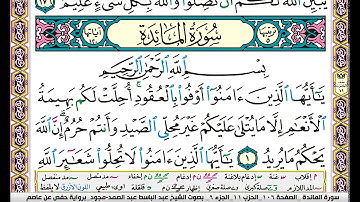 يُبَيِّنُ ٱللَّهُ لَكُمْ أَن تَضِلُّوا۟ وَٱللَّهُ بِكُلِّ شَىْءٍ عَلِيمٌ ١٧٦
سُورَةُ المَائدَة
بِسْمِ ٱللَّهِ ٱلرَّحْمَٰنِ ٱلرَّحِيمِ
يَٰٓأَيُّهَا ٱلَّذِينَ ءَامَنُوٓا۟ أَوْفُوا۟ بِٱلْعُقُودِ أُحِلَّتْ لَكُم بَهِيمَةُ
ٱلْأَنْعَٰمِ إِلَّا مَا يُتْلَىٰ عَلَيْكُمْ غَيْرَ مُحِلِّى ٱلصَّيْدِ وَأَنتُمْ حُرُمٌ إِنَّ ٱللَّهَ
يَحْكُمُ مَا يُرِيدُ ١ يَٰٓأَيُّهَا ٱلَّذِينَ ءَامَنُوا۟ لَا تُحِلُّوا۟ شَعَٰٓئِرَ ٱللَّهِ
سورة المائدة الصفحة ١٠٦ الحزب ١١ الجزء ٦ بصوت الشيخ عبد الباسط عبد الصمد-مجود برواية حفص عن عاصم